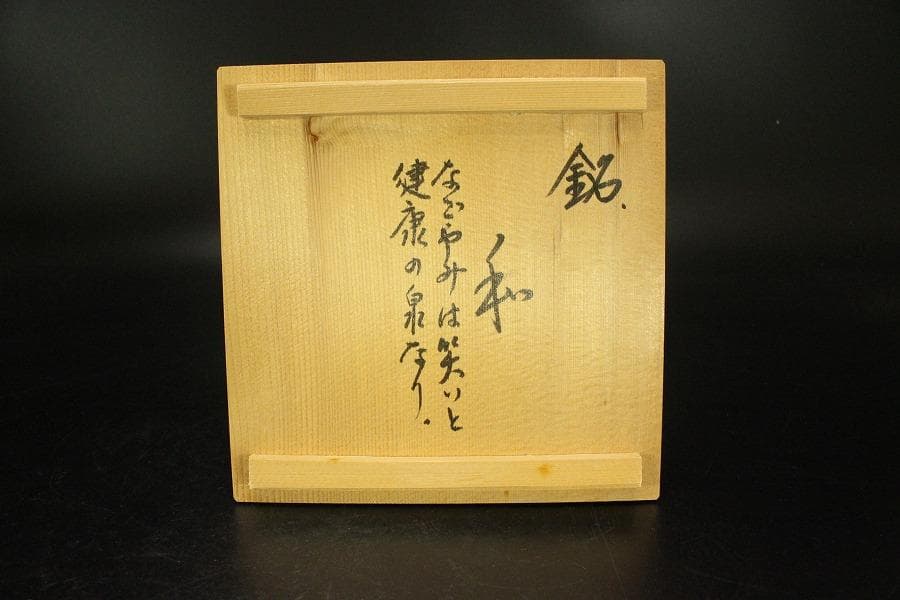 銘.
和
なごやみは笑いと
健康の泉なり.